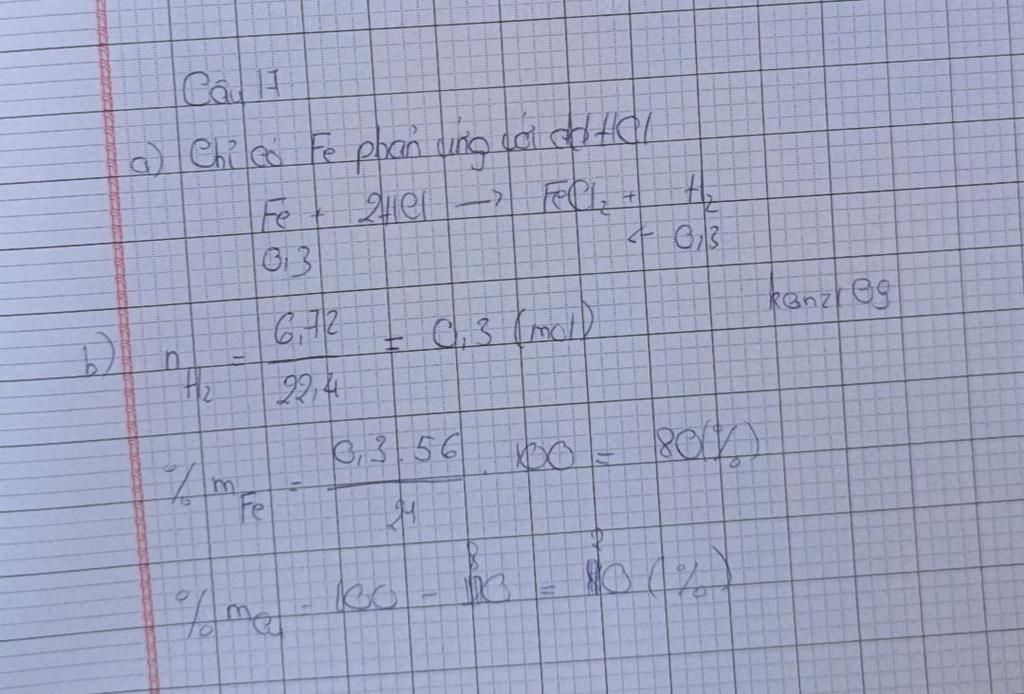 Câu 17
a) Chỉ có Fe phản ứng với dd HCl
Fe + 2HCl → FeCl₂ + H₂
0,3 ← 0,3
kanzreg
b) n H₂ = 6,72 / 22,4 = 0,3 (mol)
% m Fe = 0,3.56 / 21 . 100 = 80(%)
% m = 100 - = (%)